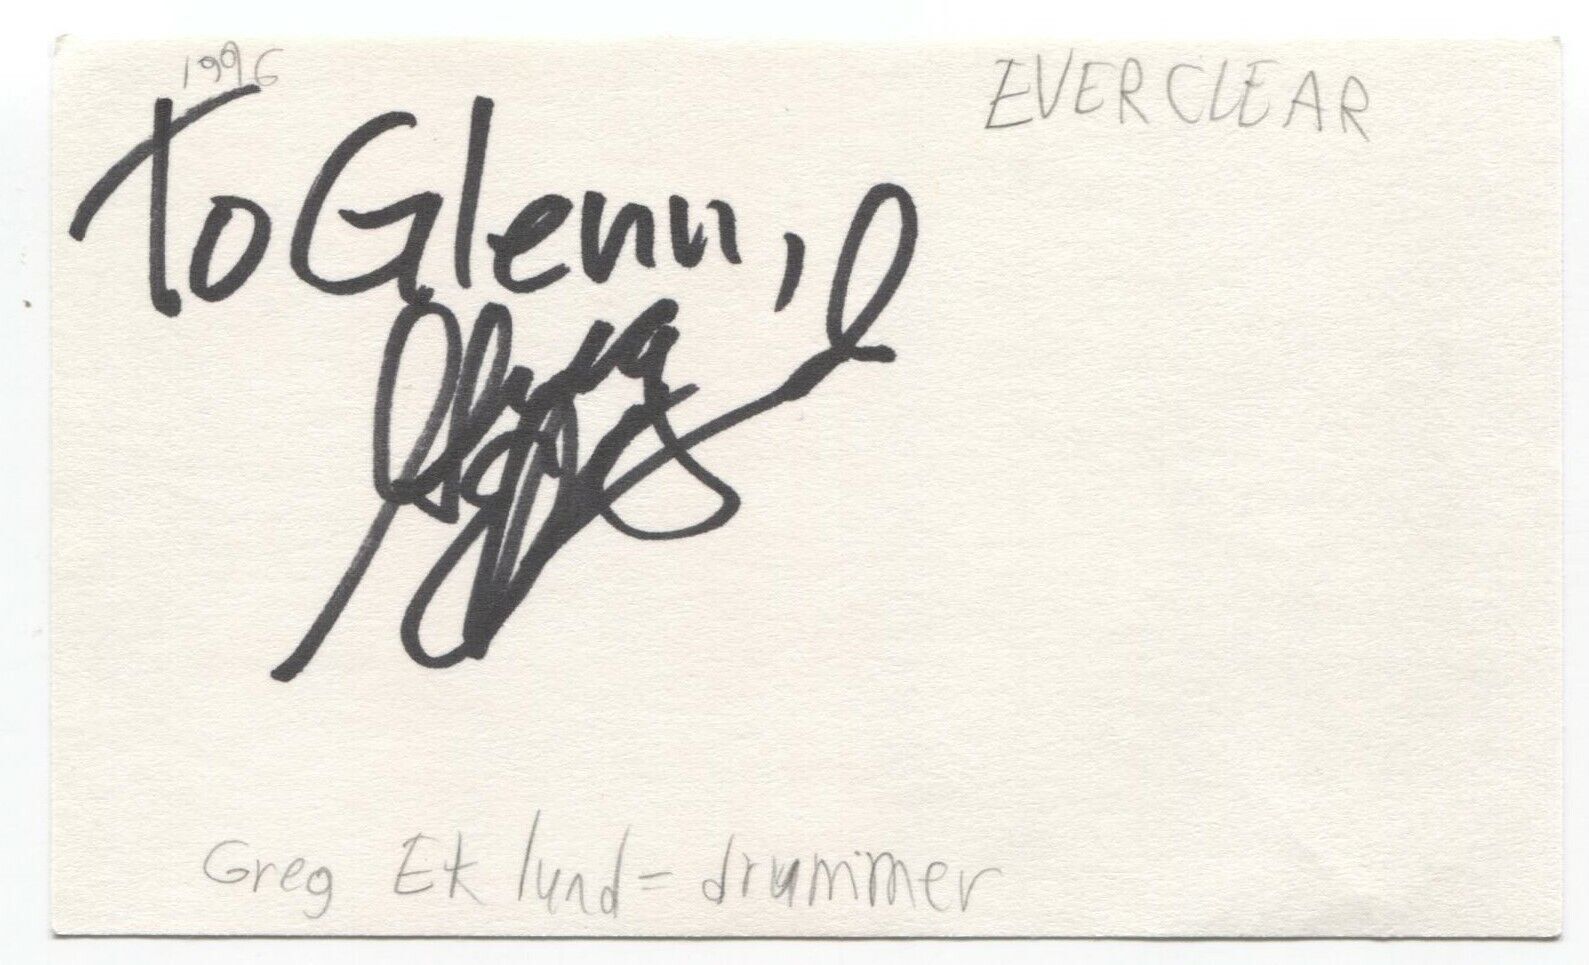 1996
EVERCLEAR
To Glenn,
Greg Eklund = drummer